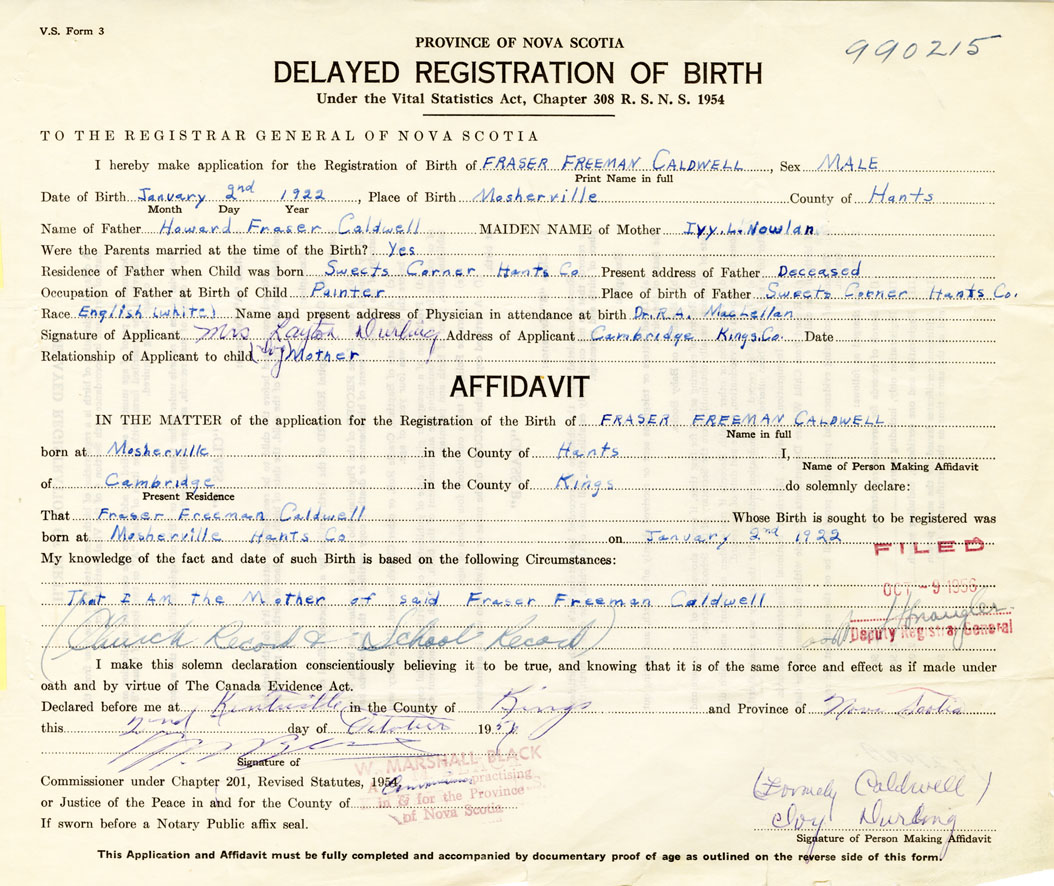 V.S. Form 3
990215
PROVINCE OF NOVA SCOTIA
DELAYED REGISTRATION OF BIRTH
Under the Vital Statistics Act, Chapter 308 R. S. N. S. 1954
TO THE REGISTRAR GENERAL OF NOVA SCOTIA
I hereby make application for the Registration of Birth of FRASER FREEMAN CALDWELL, Sex MALE
Print Name in full
Date of Birth January 2nd 1922, Place of Birth Mosherville County of Hants
Month Day Year
Name of Father Howard Fraser Caldwell MAIDEN NAME of Mother Ivy. L. Nowlan
Were the Parents married at the time of the Birth? Yes
Residence of Father when Child was born Sweets Corner Hants Co Present address of Father Deceased
Occupation of Father at Birth of Child Painter Place of birth of Father Sweets Corner Hants Co.
Race English (white) Name and present address of Physician in attendance at birth Dr. R.A. MacLellan
Signature of Applicant Mrs Layton Durling Address of Applicant Cambridge Kings. Co. Date
Relationship of Applicant to child (Ivy) Mother
AFFIDAVIT
IN THE MATTER of the application for the Registration of the Birth of FRASER FREEMAN CALDWELL
Name in full
born at Mosherville in the County of Hants I,
Name of Person Making Affidavit
of Cambridge in the County of Kings do solemnly declare:
Present Residence
That Fraser Freeman Caldwell Whose Birth is sought to be registered was
born at Mosherville Hants Co on January 2nd 1922
FILED
My knowledge of the fact and date of such Birth is based on the following Circumstances:
OCT - 9 1956
That I Am the Mother of said Fraser Freeman Caldwell
Deputy Registrar General
(Church Record & School Record)
I make this solemn declaration conscientiously believing it to be true, and knowing that it is of the same force and effect as if made under
oath and by virtue of The Canada Evidence Act.
Declared before me at Kentville in the County of Kings and Province of Nova Scotia
this 2nd day of October 195
Signature of
W. MARSHALL BLACK
Commissioner under Chapter 201, Revised Statutes, 1954,
practising
or Justice of the Peace in and for the County of
in & for the Province
of Nova Scotia
If sworn before a Notary Public affix seal.
(Formerly Caldwell)
Ivy Durling
Signature of Person Making Affidavit
This Application and Affidavit must be fully completed and accompanied by documentary proof of age as outlined on the reverse side of this form.